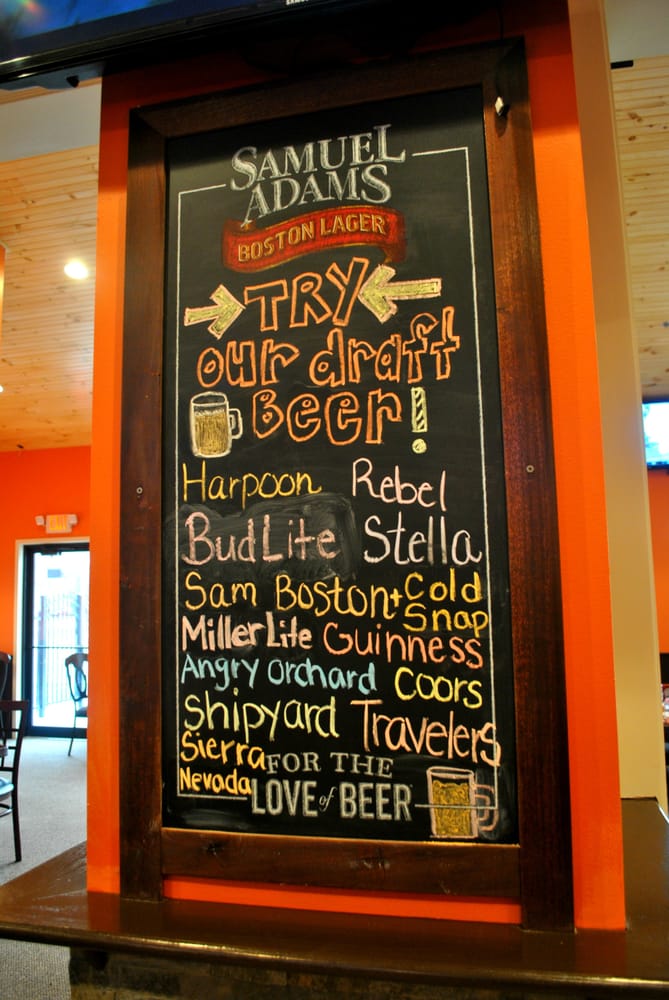 SAMUEL
ADAMS
BOSTON LAGER
TRY
our draft
Beer!
Harpoon Rebel
Bud Lite Stella
Sam Boston + Cold Snap
Miller Lite Guinness
Angry Orchard Coors
Shipyard Travelers
Sierra Nevada
FOR THE
LOVE of BEER